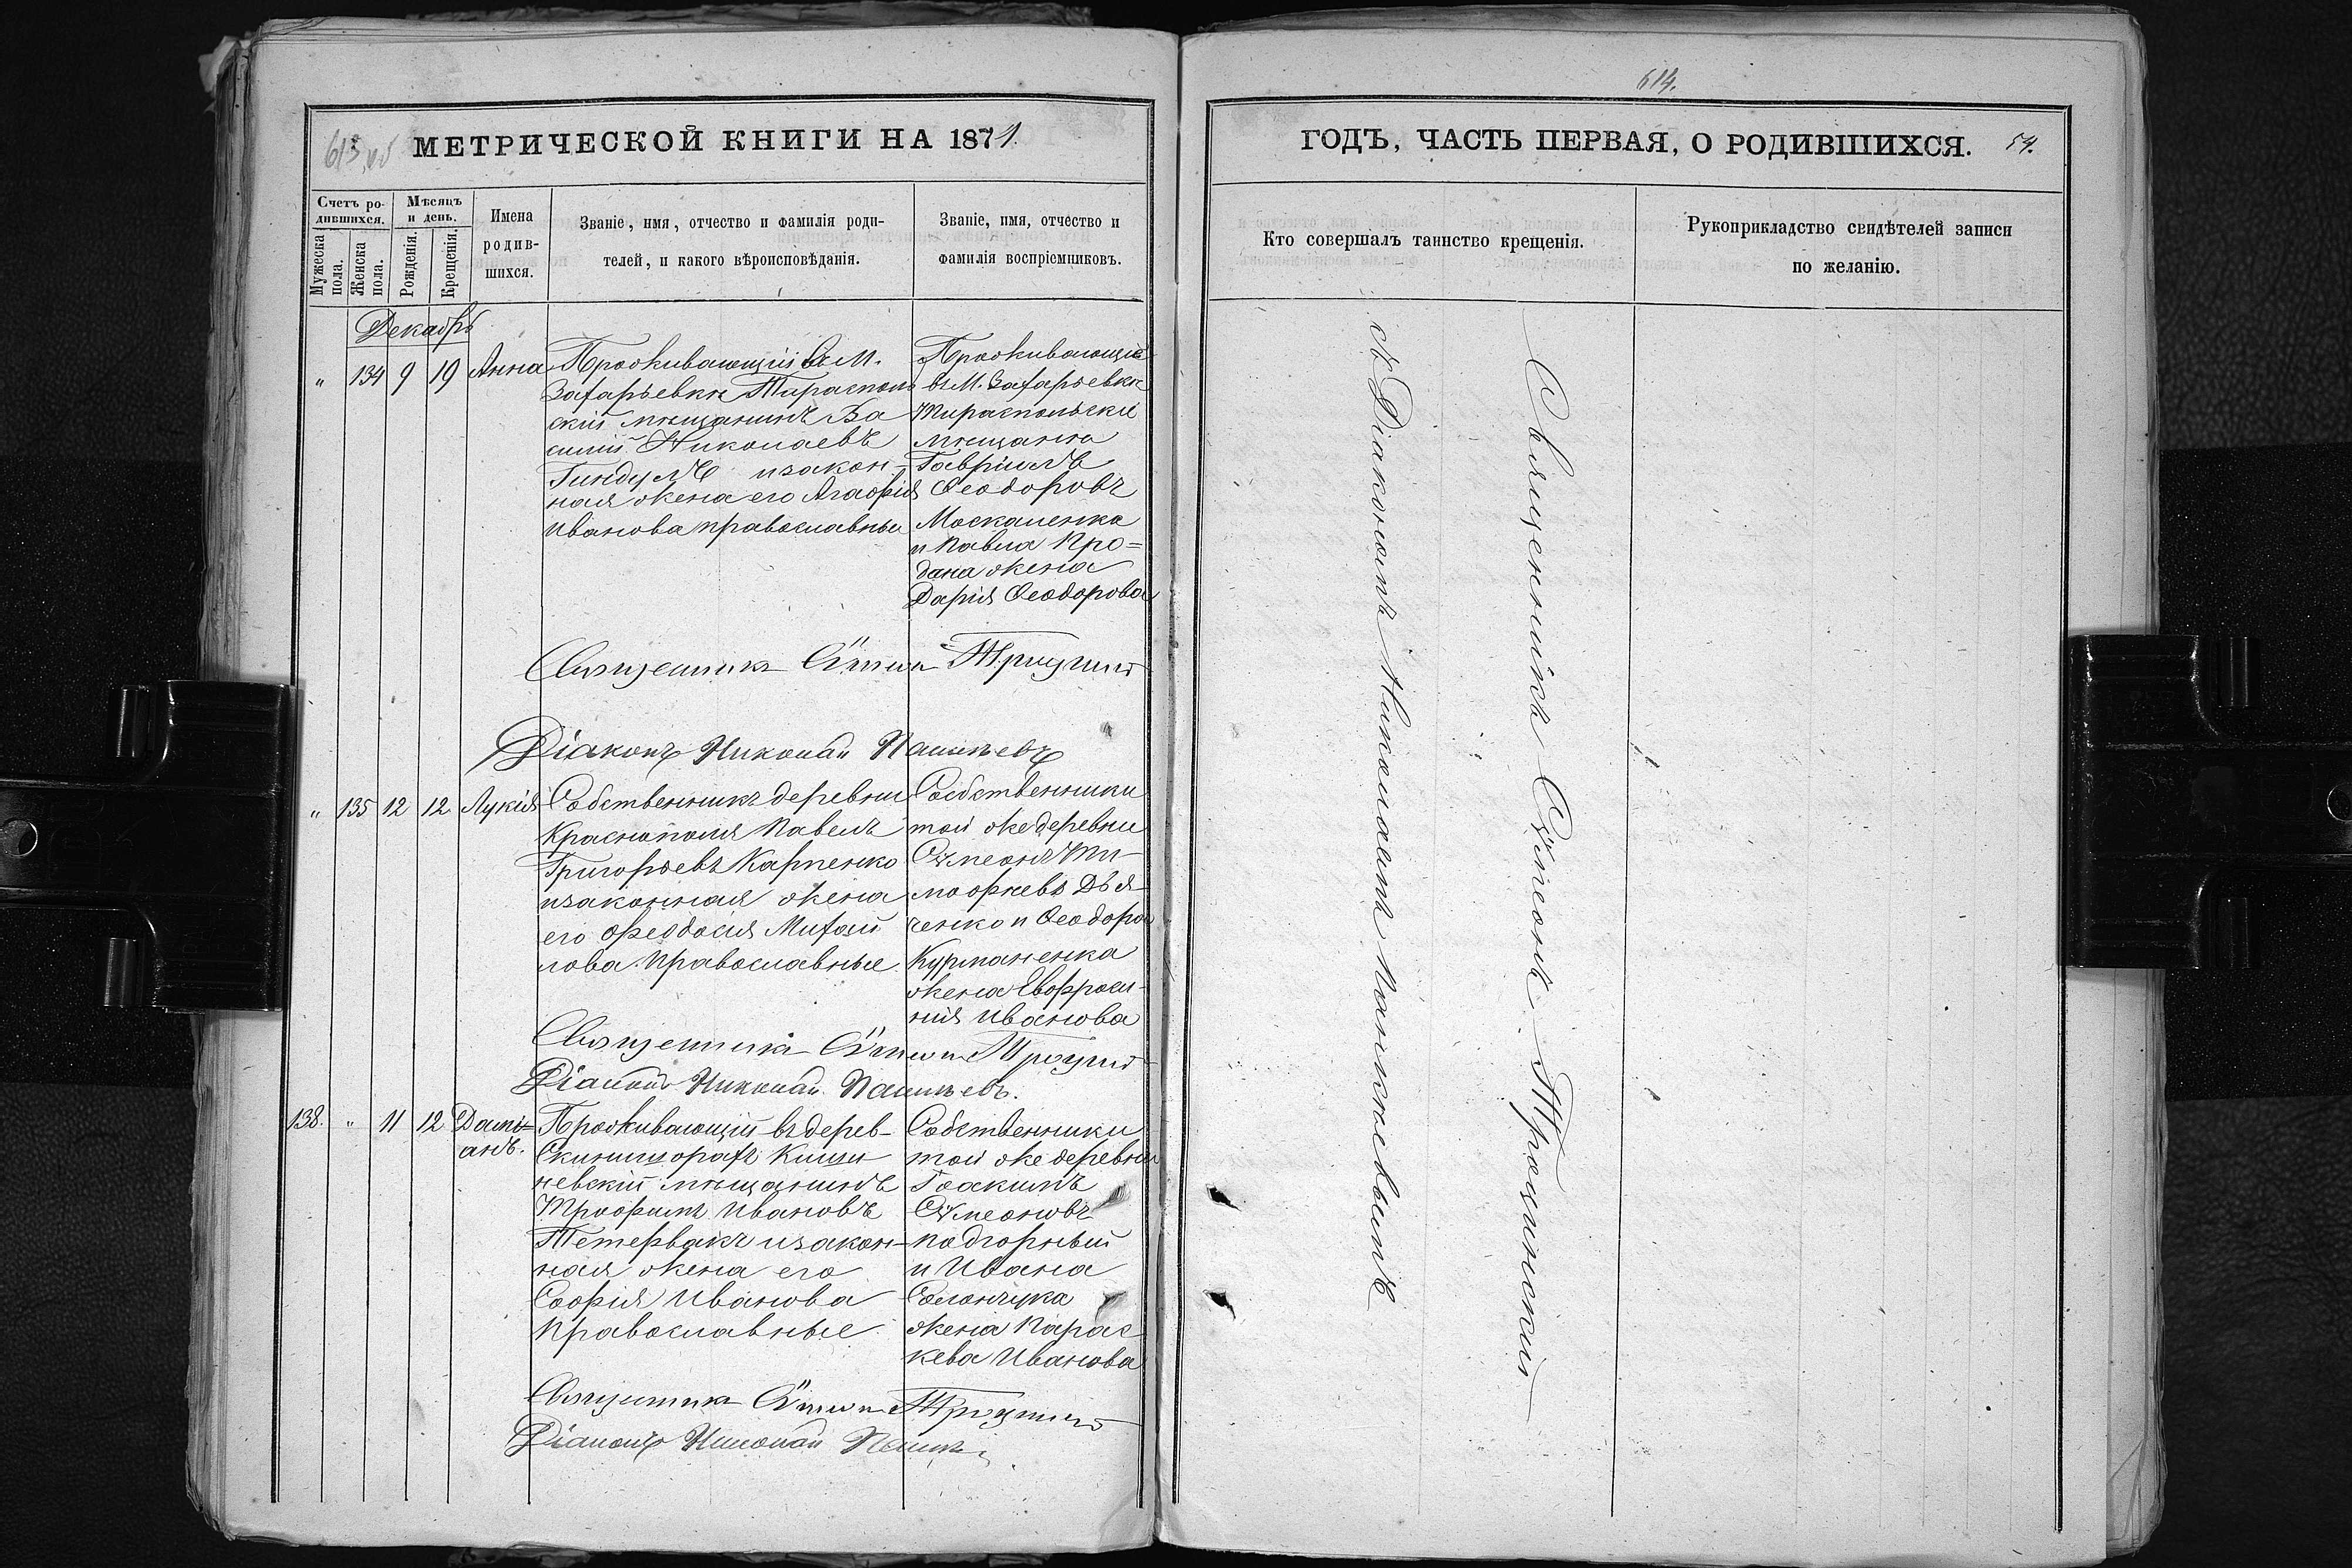 613 об
МЕТРИЧЕСКОЙ КНИГИ НА 1871.
Счетъ ро-
дившихся.
Мужеска
пола.
Женска
пола.
Мѣсяцъ
и день.
Рожденія.
Крещенія.
Имена
родив-
шихся.
Званіе, имя, отчество и фамилія роди-
телей, и какого вѣроисповѣданія.
Званіе, имя, отчество и
фамилія воспріемниковъ.
Декабрь
" 134 9 19 Анна
Проживающій въ М.
Захарьевкѣ Тирасполь
скій мѣщанинъ Ва
силій Николаевъ
Гиндулъ и закон-
ная жена его Агафія
Иванова православные
Проживающіе
въ М. Захарьевкѣ
Тираспольскіе
мѣщане
Гавріилъ
Ѳеодоровъ
Москаленко
и Павла Про=
дана жена
Дарія Ѳеодорова
Священникъ Сѵмеонъ Троцкій
Діаконъ Николай
" 135 12 12 Лукія
Собственникъ деревни
Краснополя Павелъ
Григорьевъ Карпенко
и законная жена
его Феодосія Михай
лова православные
Собственники
той же деревни
Сѵмеонъ Ти-
мофѣевъ Дья-
ченко и Ѳеодора
Курманенка
жена Евфроси-
нія Иванова
Священникъ Сѵмеонъ Троцкій
Діаконъ Николай
138. " 11 12 Даміанъ.
Проживающій въ дерев-
Кишиневскій мѣщанинъ
Трофимъ Ивановъ
Тетервакъ и закон-
ная жена его
Софія Иванова
православные
Собственники
той же деревни
Іоакимъ
Сѵмеоновъ
подгорный
и Ивана
Солончука
жена Парас
кева Иванова
Священникъ Сѵмеонъ Троцкій
Діаконъ Николай
614.
ГОДЪ, ЧАСТЬ ПЕРВАЯ, О РОДИВШИХСЯ. 54.
Кто совершалъ таинство крещенія.
Рукоприкладство свидѣтелей записи
по желанію.
Священникъ Сѵмеонъ
съ Діакономъ Николаемъ